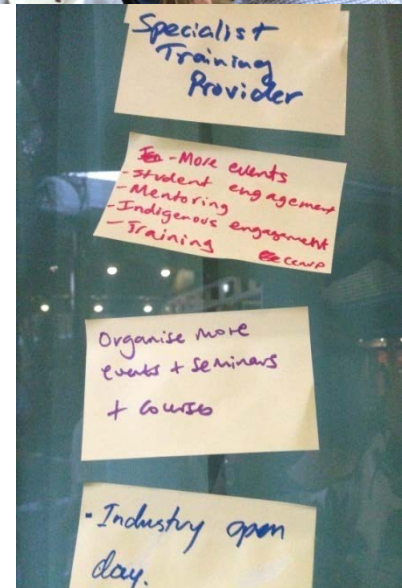 Specialist
Training
Provider
- More events
- Student engagement
- Mentoring
- Indigenous engagement
- Training
Organise more
events + seminars
+ courses
- Industry open
day.